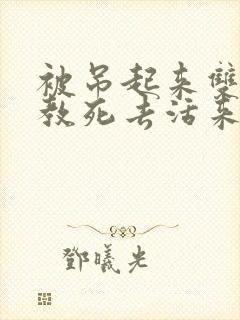 被吊起来雙
教死去活来
鄧曦光